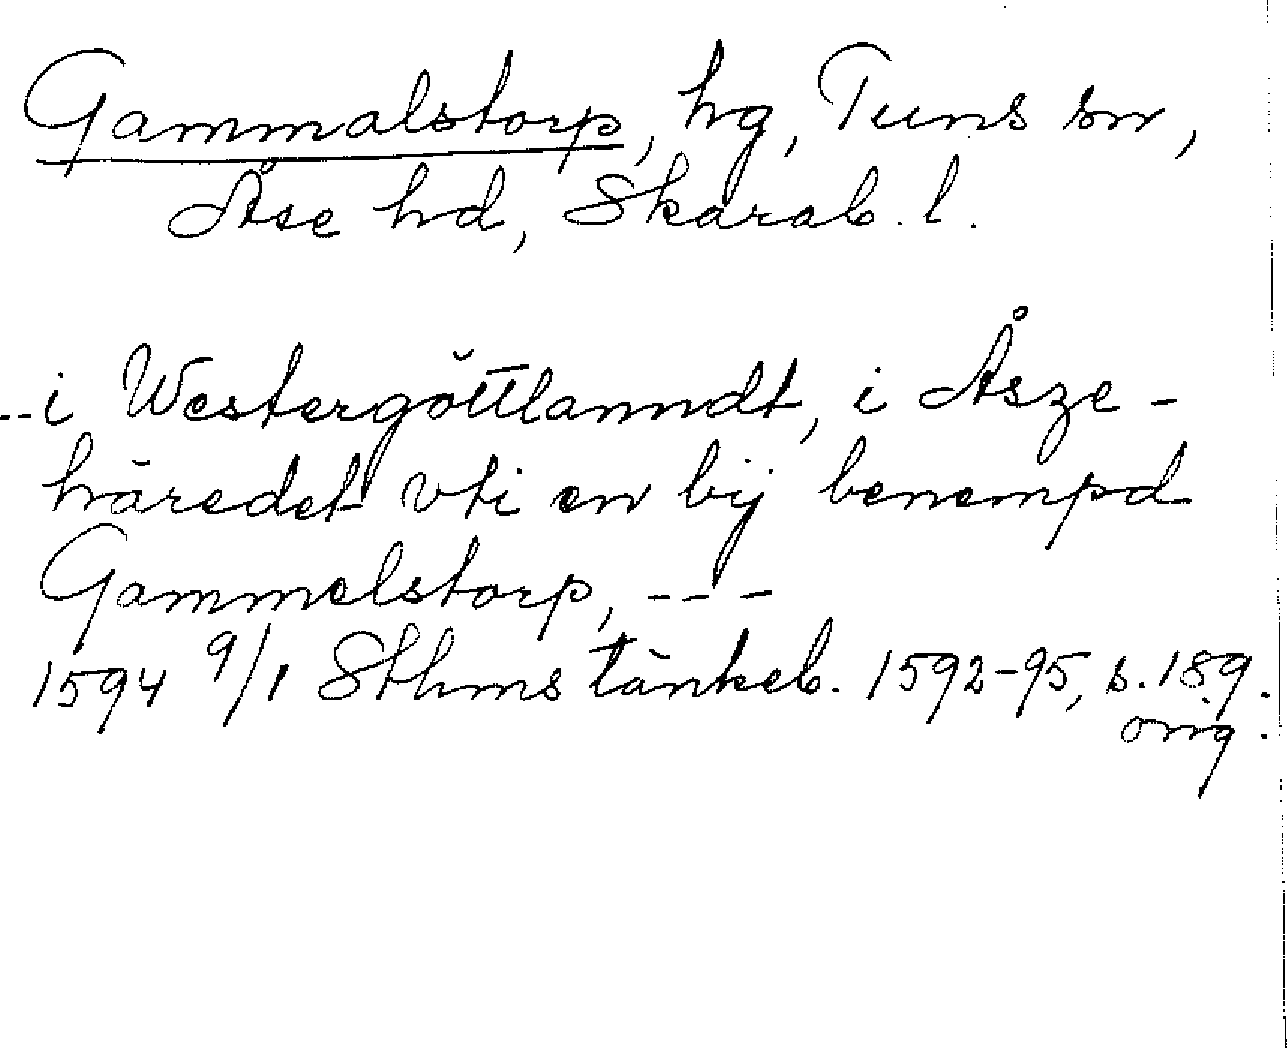 Gammalstorp, hg, Tuns sn,
Åse hd, Skarab. l.
--i Westergöttlanndt, i Åsze-
häredet vti en bij benempd
Gammelstorp, ---
1594 9/1 Sthms tänkeb. 1592-95, s. 189.
orig.